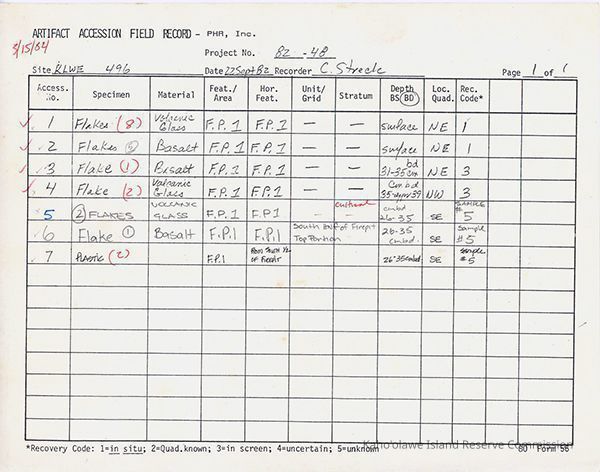 ARTIFACT ACCESSION FIELD RECORD - PHR, Inc.
3/15/84
Project No. 82-48
Site KLWE 496 Date 22 Sept 82 Recorder C. Streck Page 1 of 1
Access. No. Specimen Material Feat./ Area Hor. Feat. Unit/ Grid Stratum Depth BS/BD Loc. Quad. Rec. Code*
✓ 1 Flakes (8) Volcanic Glass F.P. 1 F.P. 1 — — surface NE 1
✓ 2 Flakes Basalt F.P. 1 F.P. 1 — — surface NE 1
✓ 3 Flake (1) Basalt F.P. 1 F.P. 1 — — bd 31-35cm NE 3
✓ 4 Flake (2) Volcanic Glass F.P. 1 F.P. 1 — — cmbd NW 3
5 2 FLAKES VOLCANIC GLASS F.P. 1 F.P. 1 — — cultural cmbd 26-35 SE SAMPLE # 5
6 Flake 1 Basalt F.P. 1 F.P. 1 South Half of Firepit Top Portion 26-35 cmbd. SE Sample #5
7 PLASTIC (2) F.P. 1 FROM SOUTH 1/2 OF FIREPIT 26-35cmbd SE Sample #5
*Recovery Code: 1=in situ; 2=Quad.known; 3=in screen; 4=uncertain; 5=unknown 80 Form 56
Kaho'olawe Island Reserve Commission